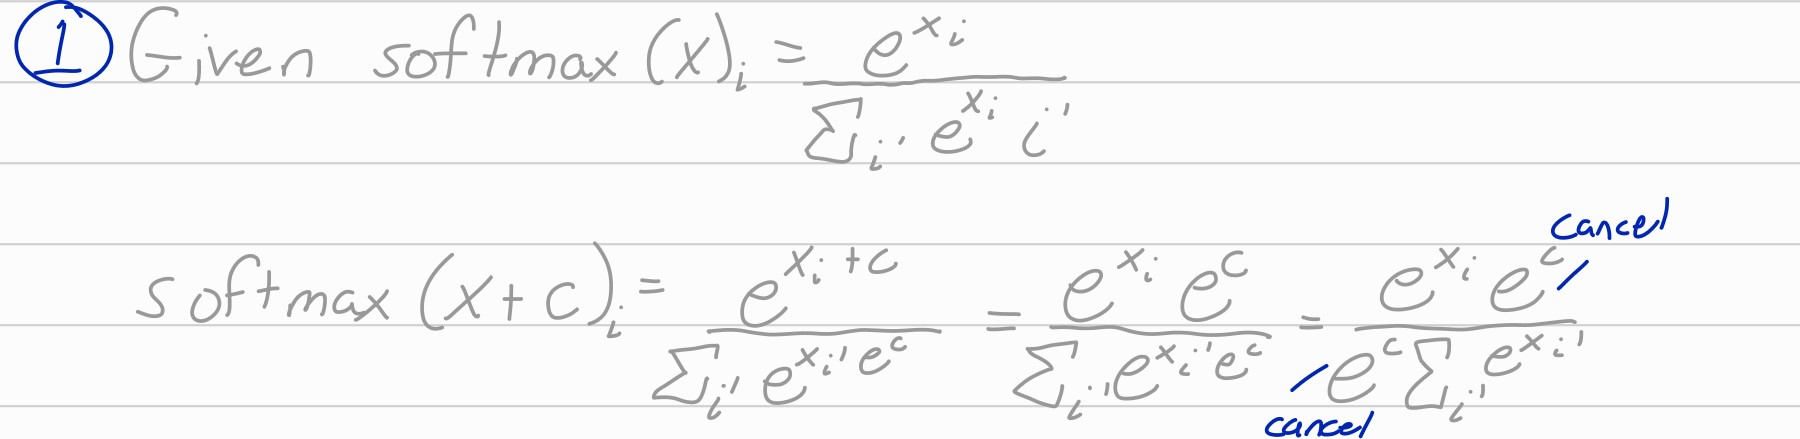 ① Given softmax (x)_i = e^{x_i} / Σ_{i'} e^{x_i} i'
cancel
softmax (x+c)_i = e^{x_i+c} / Σ_{i'} e^{x_{i'}} e^c = e^{x_i} e^c / Σ_{i'} e^{x_{i'}} e^c = e^{x_i} e^c / e^c Σ_{i'} e^{x_{i'}}
cancel